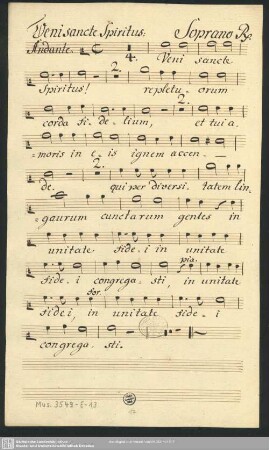 Veni sancte Spiritus. Soprano R.
Andante. 4. Veni sancte
Spiritus! 2. repletu- orum
corda fi- de- lium, 2. et tui a
=moris in e- is ignem accen-
de. 2. qui per diversi- tatem lin-
gaurum cunctarum gentes in
unitate fide- i in unitate
fidei congrega- sti, in unitate pia.
fidei, in unitate fide- i for.
congrega- sti.
Mus. 3549-E-13